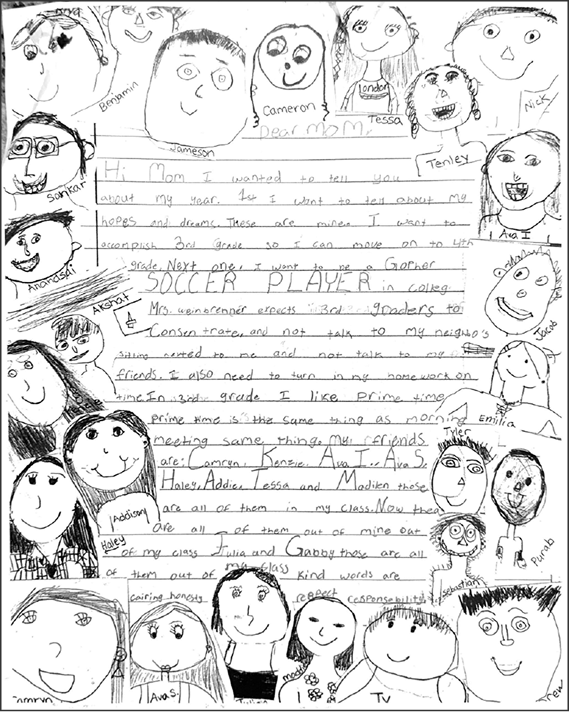 Benjamin
Jameson
Cameron
London
Tessa
Tenley
Nick
Dear Mom,
Sankar
Ava I
Anandsai
Akshat
Jacob
Emilia
Tyler
Addison
Haley
Purab
Sebastian
Camryn
Ava S.
Ty
Hi Mom I wanted to tell you
about my year. 1st I want to tell about my
hopes and dreams. These are mine. I want to
accomplish 3rd grade so I can move on to 4th
grade. Next one, I want to be a Gorher
SOCCER PLAYER in colleg
Mrs. weinbrenner expects 3rd graders to
Consentrate, and not talk to my neighbo's
sitting nexted to me and not talk to my
friends. I also need to turn in my home work on
time. In 3rd grade I like prime time
prime time is the same thing as morning
meeting same thing. My friends
are: Camryn, Kenzie, Ava I., Ava S,
Haley, Addie, Tessa and Madilen those
are all of them in my class. Now the
are all of them out of mine out
of my class Julia and Gabby those are all
of them out of my class Kind words are
cairing honesty respect responsibility